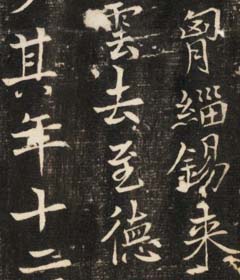 胷緇錫来
雲去至德
其年十二